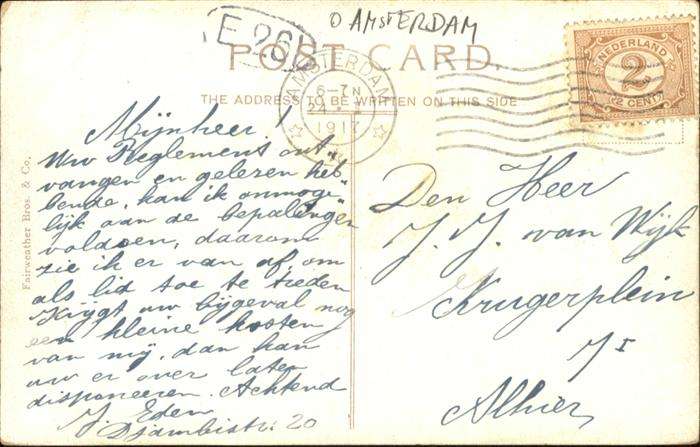 E 261
O AMSTERDAM
POST CARD.
THE ADDRESS TO BE WRITTEN ON THIS SIDE
AMSTERDAM
6-7N
24
1917
NEDERLAND
2
2 CENT
Fairweather Bros. & Co.
Mijnheer!
Uw Reglement ont„
vangen en gelezen heb„
bende, kan ik onmoge„
lijk aan de bepalingen
voldoen, daarom
zie ik er van af om
als lid toe te treden
Krijgt uw bijgeval nog
een kleine kosten
van mij, dan kan
uw er over later
disponeeren. Achtend
J. Eden
Djambistr. 20
Den Heer
J. J. van Wijk
Krugerplein
Alhier